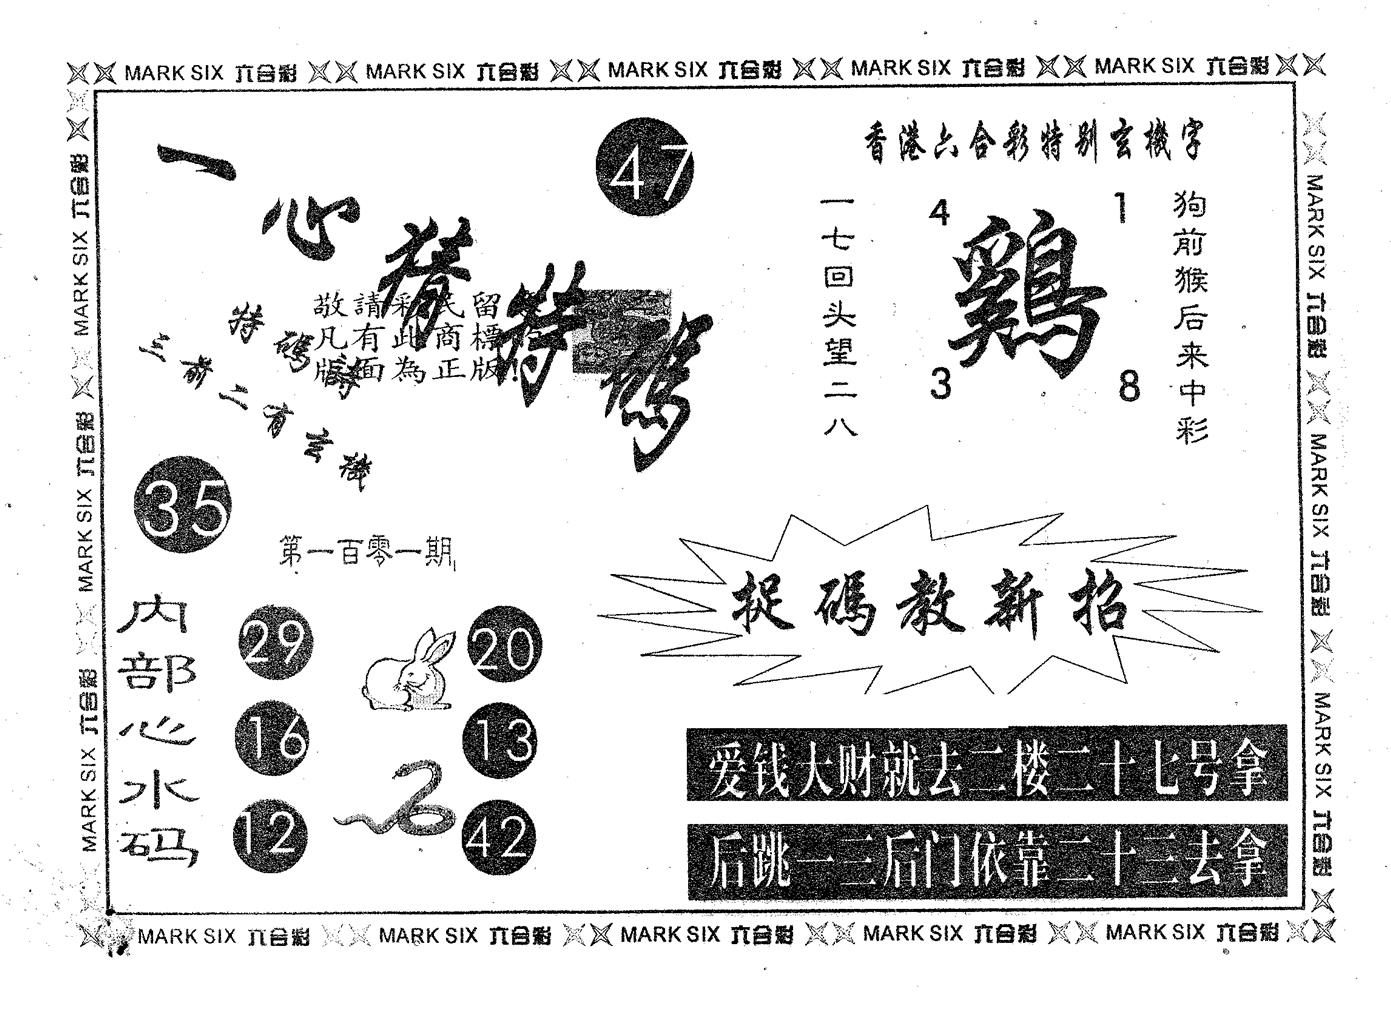 MARK SIX 六合彩 MARK SIX 六合彩 MARK SIX 六合彩 MARK SIX 六合彩 MARK SIX 六合彩
MARK SIX 六合彩 MARK SIX 六合彩 MARK SIX 六合彩
一心猜特碼
47
敬請彩民留
凡有此商標的
版面為正版!
特碼詩
三前二有玄機
35
第一百零一期
内部心水码
29 20
16 13
12 42
香港六合彩特别玄機字
一七回头望二八
4 1
鷄
3 8
狗前猴后来中彩
捉碼教新招
爱钱大财就去二楼二十七号拿
后跳一三后门依靠二十三去拿
MARK SIX 六合彩 MARK SIX 六合彩 MARK SIX 六合彩
MARK SIX 六合彩 MARK SIX 六合彩 MARK SIX 六合彩 MARK SIX 六合彩 MARK SIX 六合彩